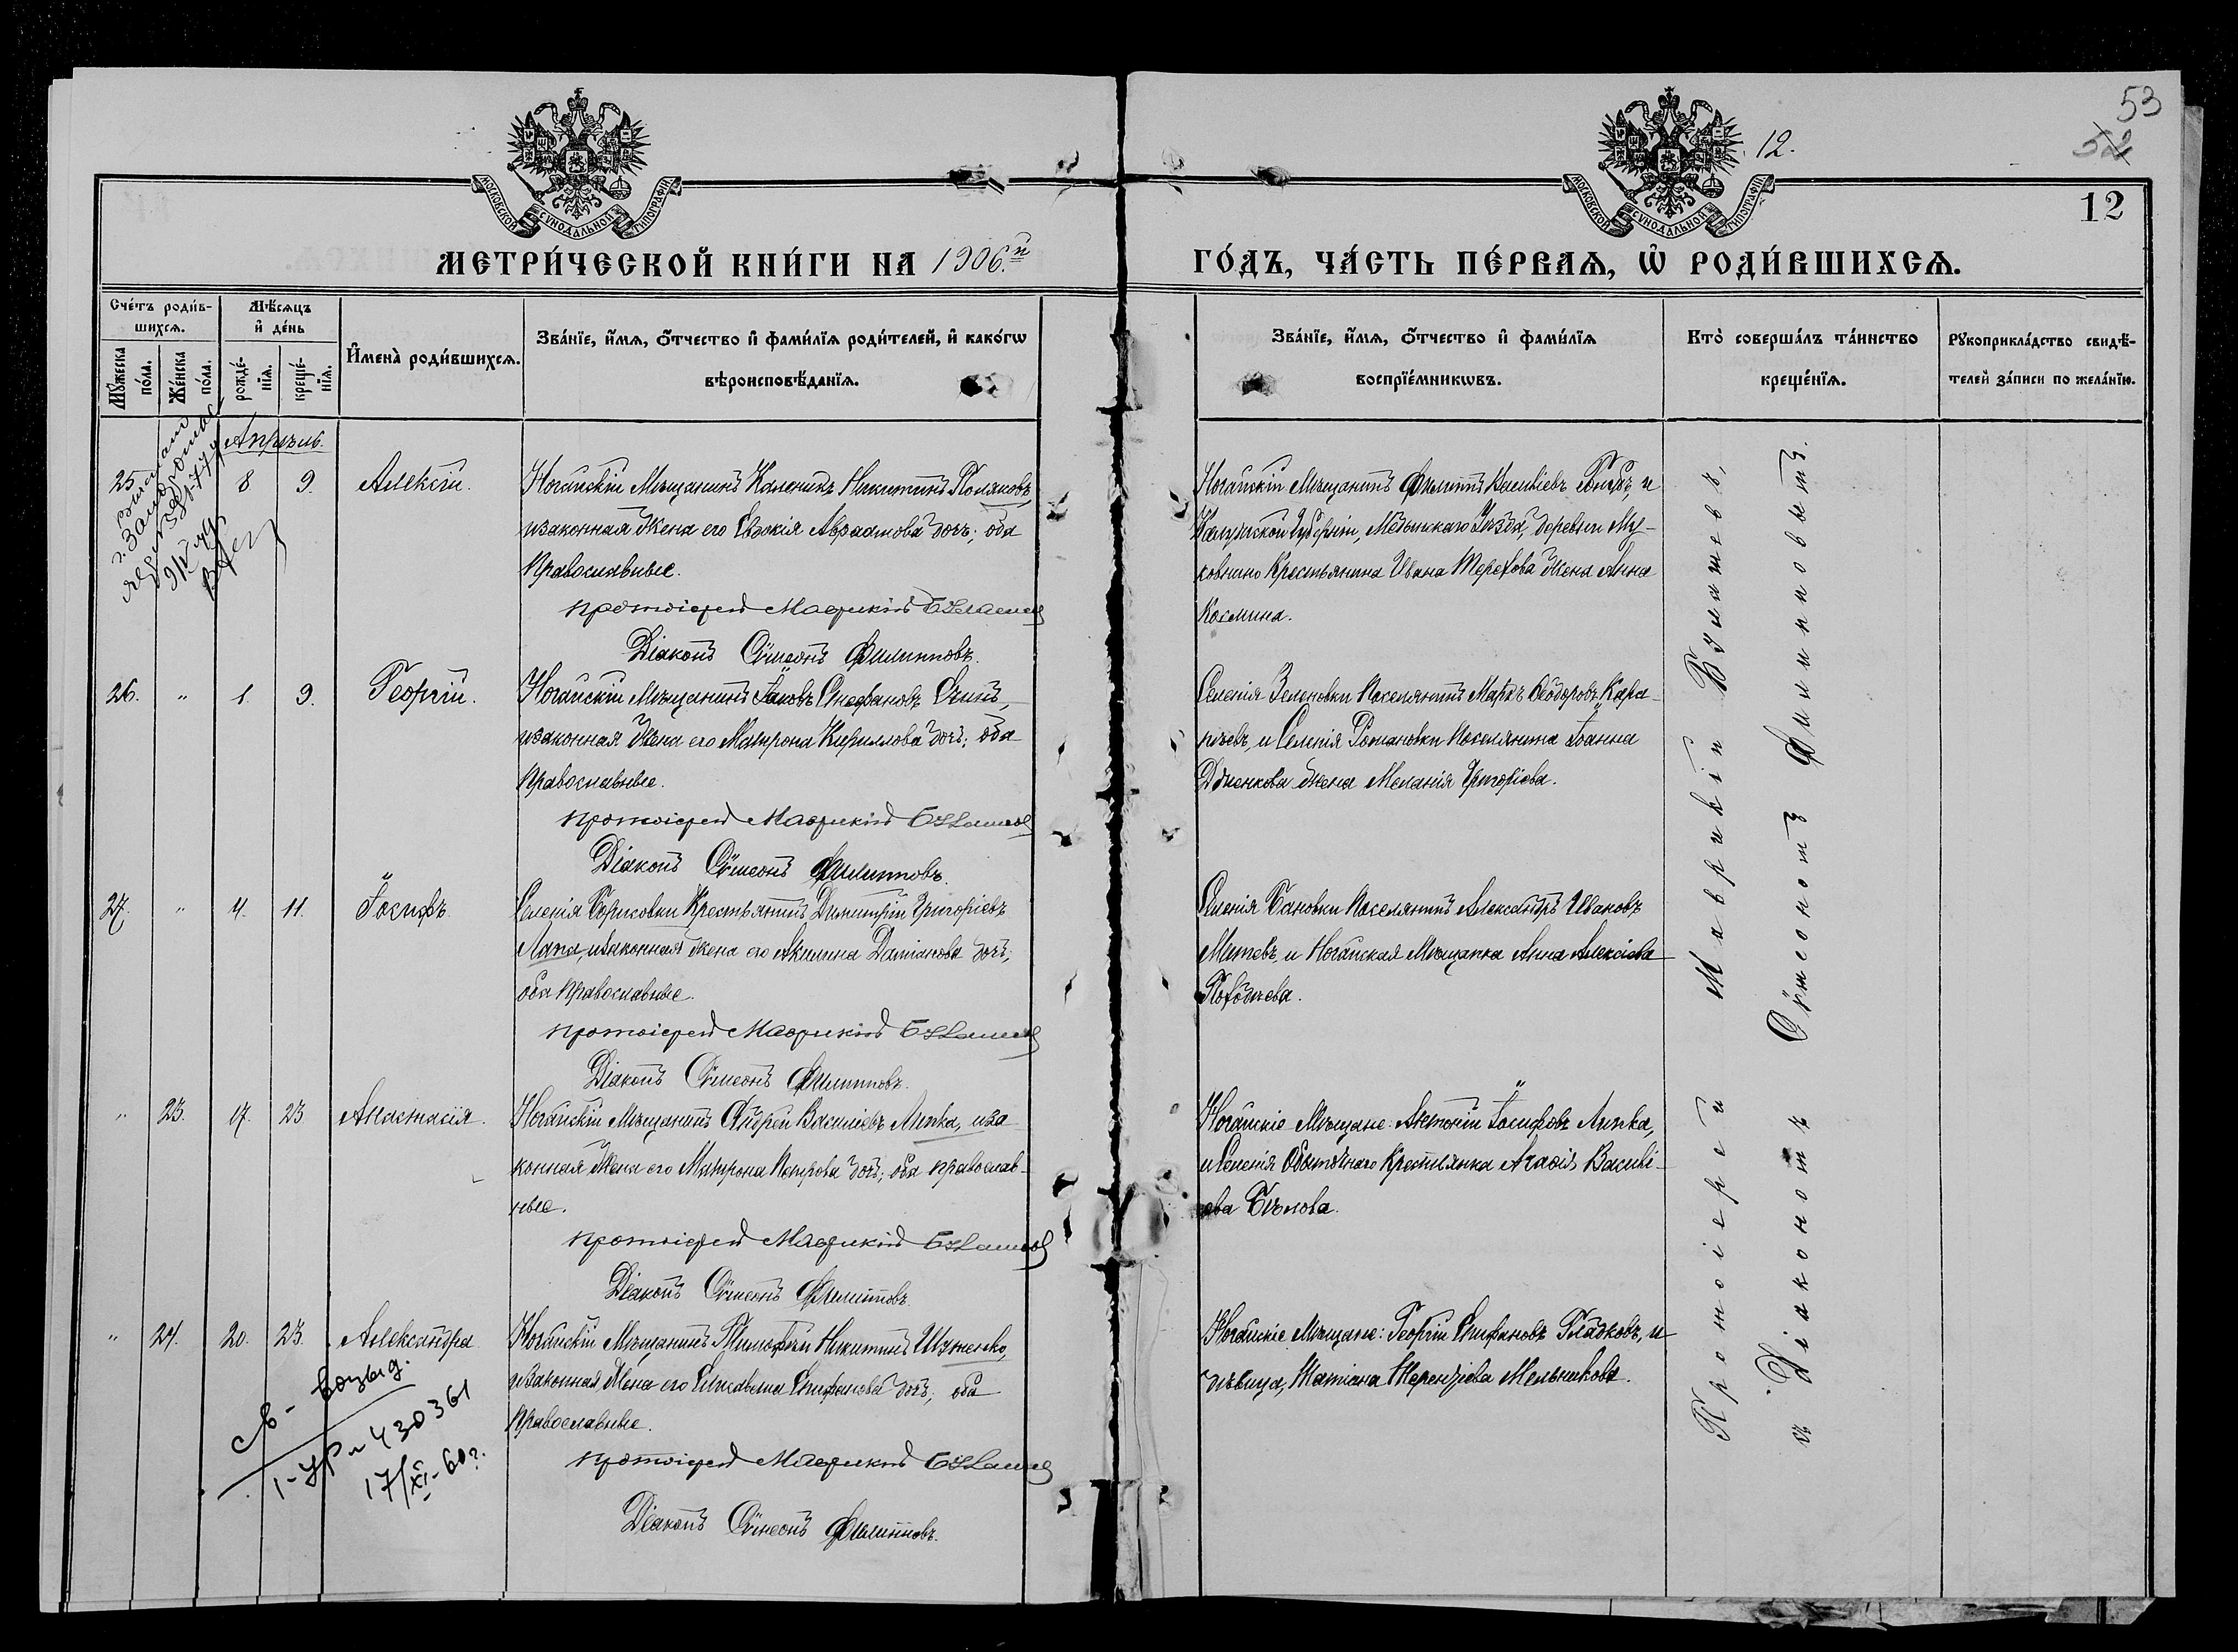 53
52
12.
12
МОСКОВСКОЙ СѴНОДАЛЬНОЙ ТИПОГРАФІИ
МОСКОВСКОЙ СѴНОДАЛЬНОЙ ТИПОГРАФІИ
МЕТРИ́ЧЕСКОЙ КНИ́ГИ НА 1906.й
ГО́ДЪ, ЧА́СТЬ ПЕ́РВАѦ, Ѡ҆ РОДИ́ВШИХСѦ.
Сче́тъ роди́в-
шихсѧ.
Мѣ́сѧцъ
и҆ де́нь
Мꙋ́жеска по́ла.
Же́нска по́ла.
рожде́-
нїѧ.
креще́-
нїѧ.
И҆мена̀ роди́вшихсѧ.
Зва́нїе, и҆́мѧ, ѻ҆́тчество и҆ фами́лїѧ роди́телей, и҆ како́гѡ
вѣроисповѣ́данїѧ.
Зва́нїе, и҆́мѧ, ѻ҆́тчество и҆ фами́лїѧ
воспрїе́мникѡвъ.
Кто̀ соверша́лъ та́инство
креще́нїѧ.
Рꙋкоприкла́дство свидѣ́-
телей за́писи по жела́нїю.
Апрѣль.
25. 8 9. Алексій. Ногайскій Мѣщанинъ Каленикъ Никитинъ Поляковъ,
изаконная Жена его Евдокія Авраамова дочь; оба
Православные.
протоіерей Маврикій Булашев
Діаконъ Сѵмеонъ Филипповъ.
Ногайскій Мѣщанинъ Филиппъ Васильевъ и
Калужской Губерніи, Медынскаго Уѣзда, деревни
Крестьянина Ивана Терехова Жена Анна
Космина.
26. " 1. 9. Георгій. Ногайскій Мѣщанинъ Іаковъ Стефановъ
изаконная Жена его Матрона Кириллова дочь; оба
Православные.
протоіерей Маврикій Булашев
Діаконъ Сѵмеонъ Филипповъ.
Селенія Зеленовки Поселянинъ Марко Ѳеодоровъ Кара-
и Селенія Романовки Поселянина Іоанна
жена Меланія Григоріева.
27. " 4. 11. Іосифъ. Селенія Борисовки Крестьянинъ Димитрій Григоріевъ
Лапа, изаконная Жена его Акилина Даміанова дочь;
оба Православные.
протоіерей Маврикій Булашев
Діаконъ Сѵмеонъ Филипповъ.
Селенія Бановки Поселянинъ Александръ Ивановъ
Митевъ, и Ногайская Мѣщанка Анна Алексіева
" 23. 17. 23 Анастасія. Ногайскій Мѣщанинъ Андрей Василіевъ Липка, иза-
конная Жена его Матрона Петрова дочь; оба православ-
ные.
протоіерей Маврикій Булашев
Діаконъ Сѵмеонъ Филипповъ.
Ногайскіе Мѣщане: Антоній Іосифовъ Липка,
и Селенія Обиточнаго Крестьянка Агафія Василі-
ева Бѣлова.
" 24. 20. 23. Александра Ногайскій Мѣщанинъ Тимофей Никитинъ
изаконная Жена его Елисавета Епифанова дочь; оба
Православные.
протоіерей Маврикій Булашев
Діаконъ Сѵмеонъ Филипповъ.
Ногайскіе Мѣщане: Георгій Епифановъ Гладковъ, и
дѣвица, Татіана Терентіева Мельникова.
Протоіерей Маврикій Булашевъ,
съ Діакономъ Сѵмеономъ Филипповымъ.
св-
I-УР № 430361
17/XI-60г.